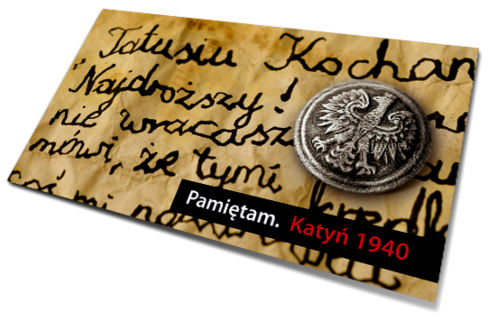 Tatusiu Kochan
Najdroższy!
nie wracasz
mówi, że tymi
coś mi
Pamiętam. Katyń 1940